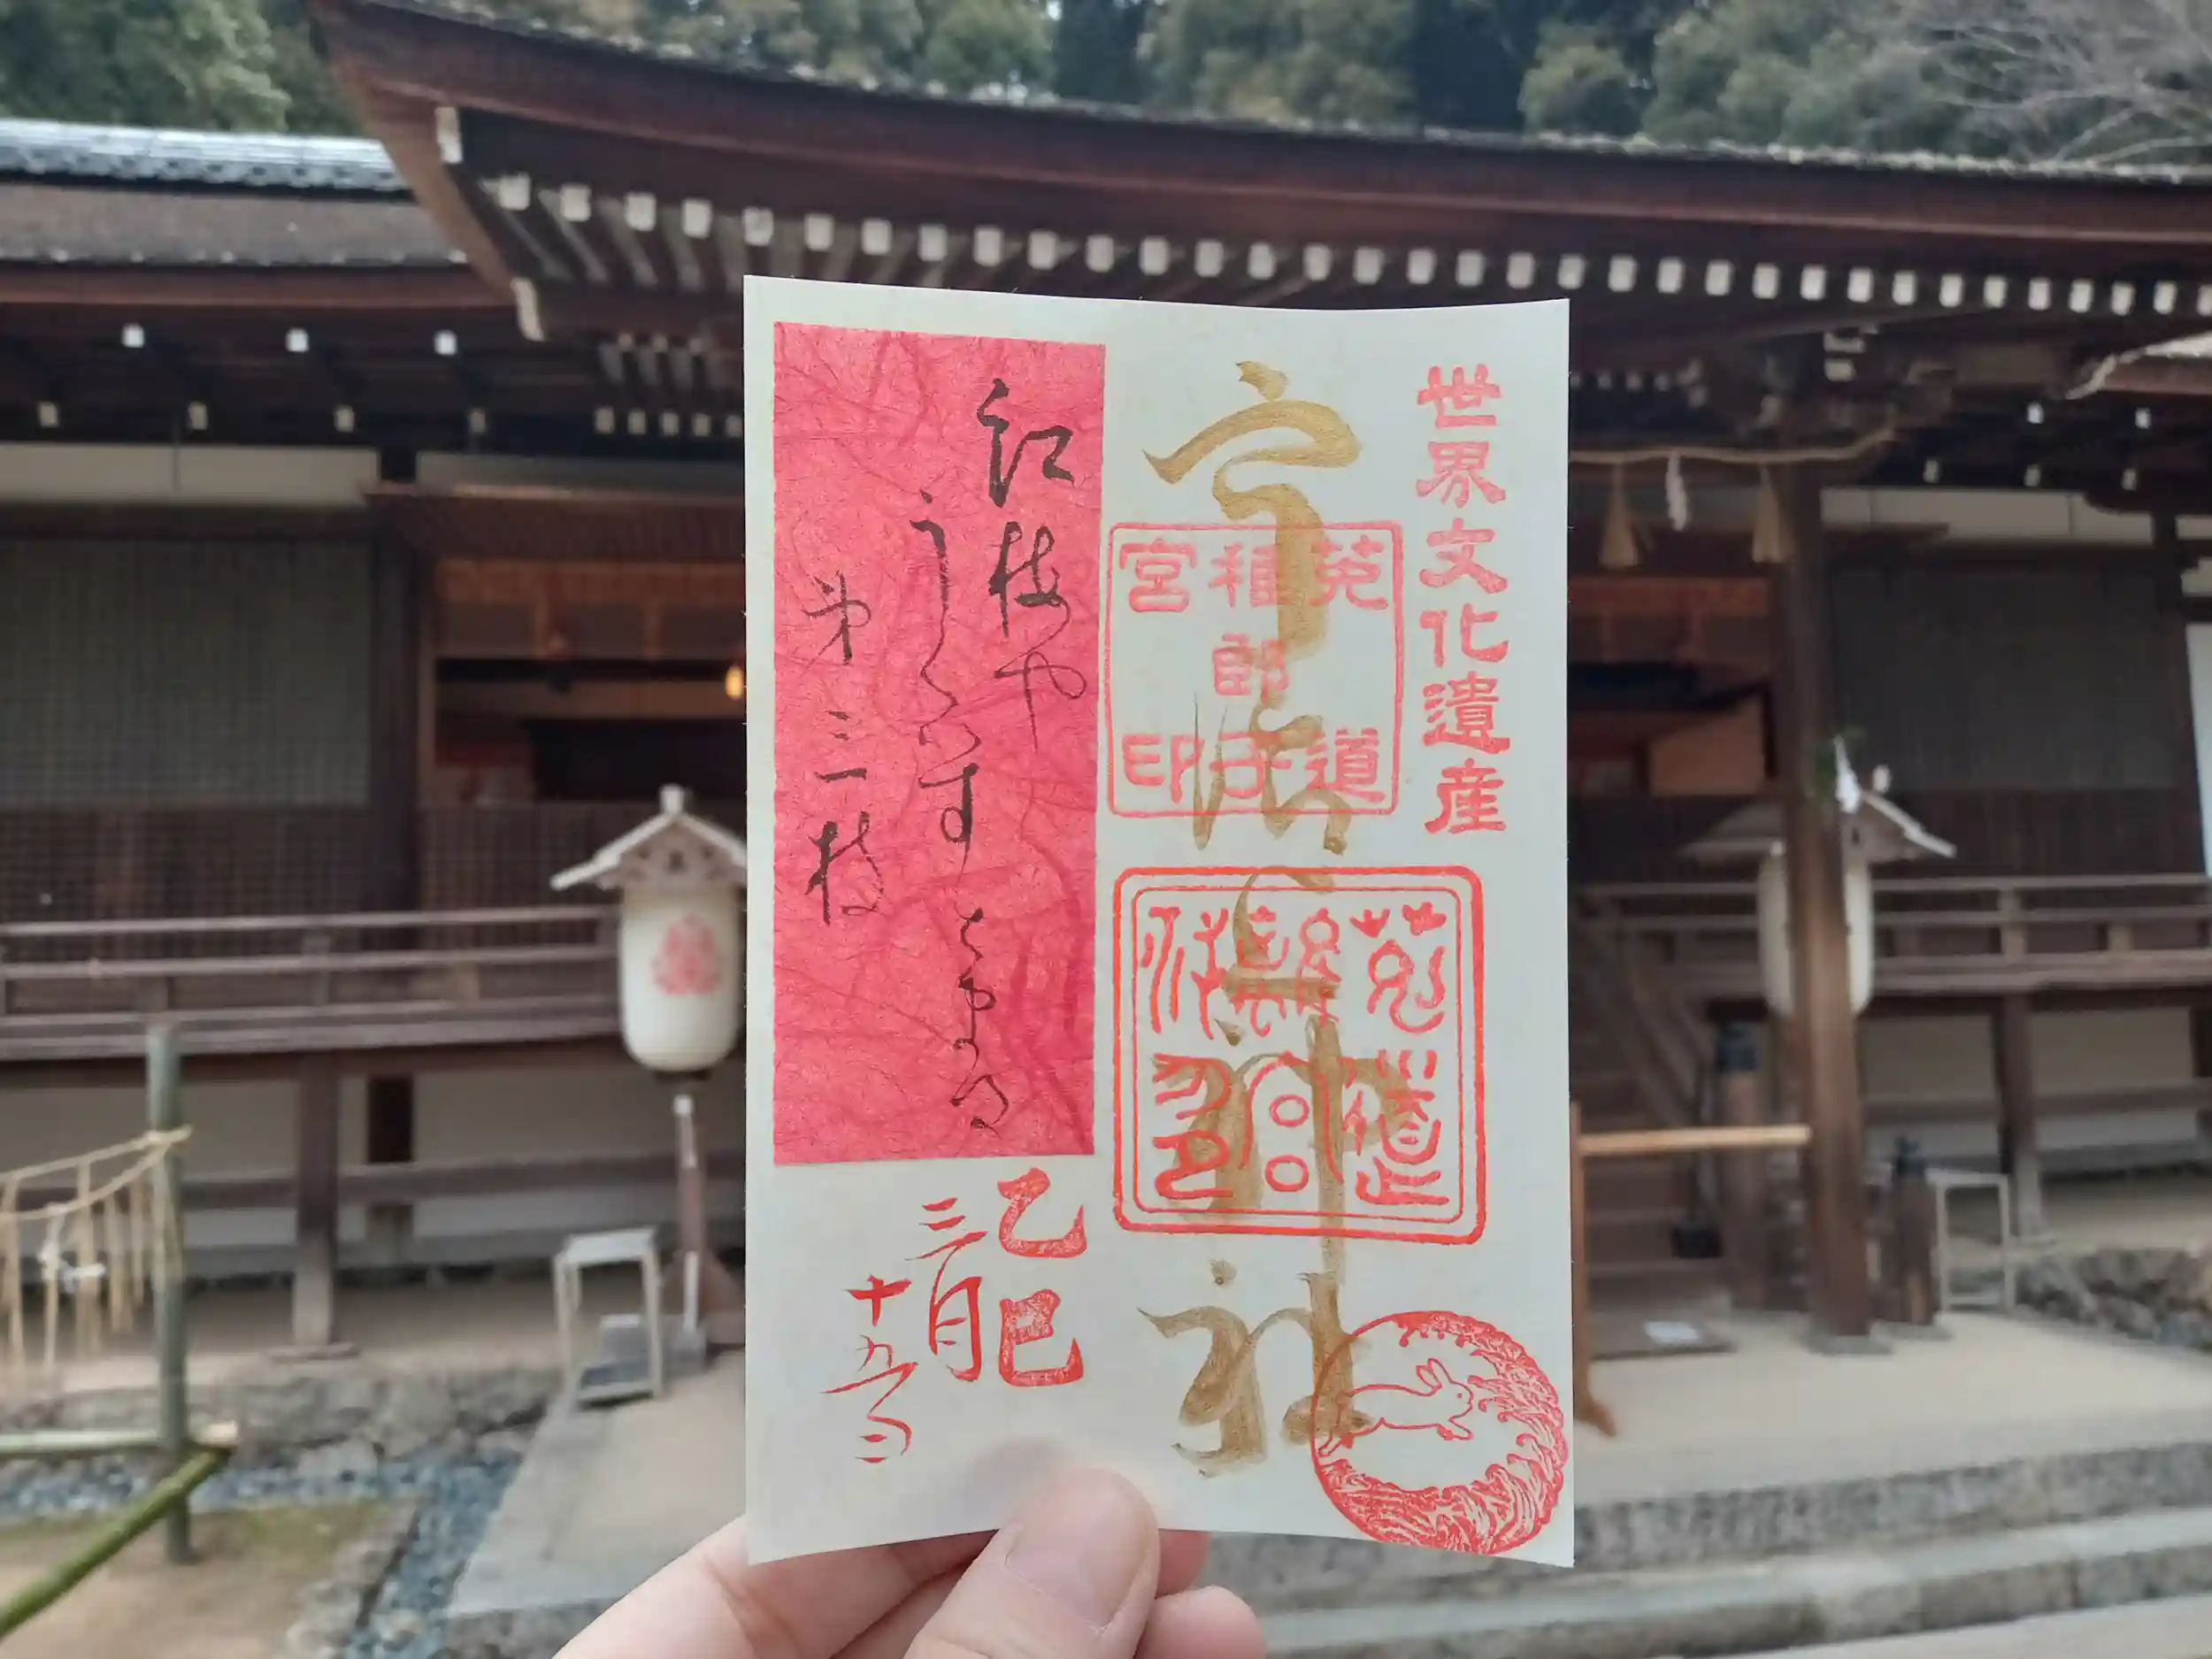 世界文化遺産
宇治上神社
菟道
稚郎子
宮印
紅梅や
うくひすとまる
第三枝
乙巳
三月
十五日